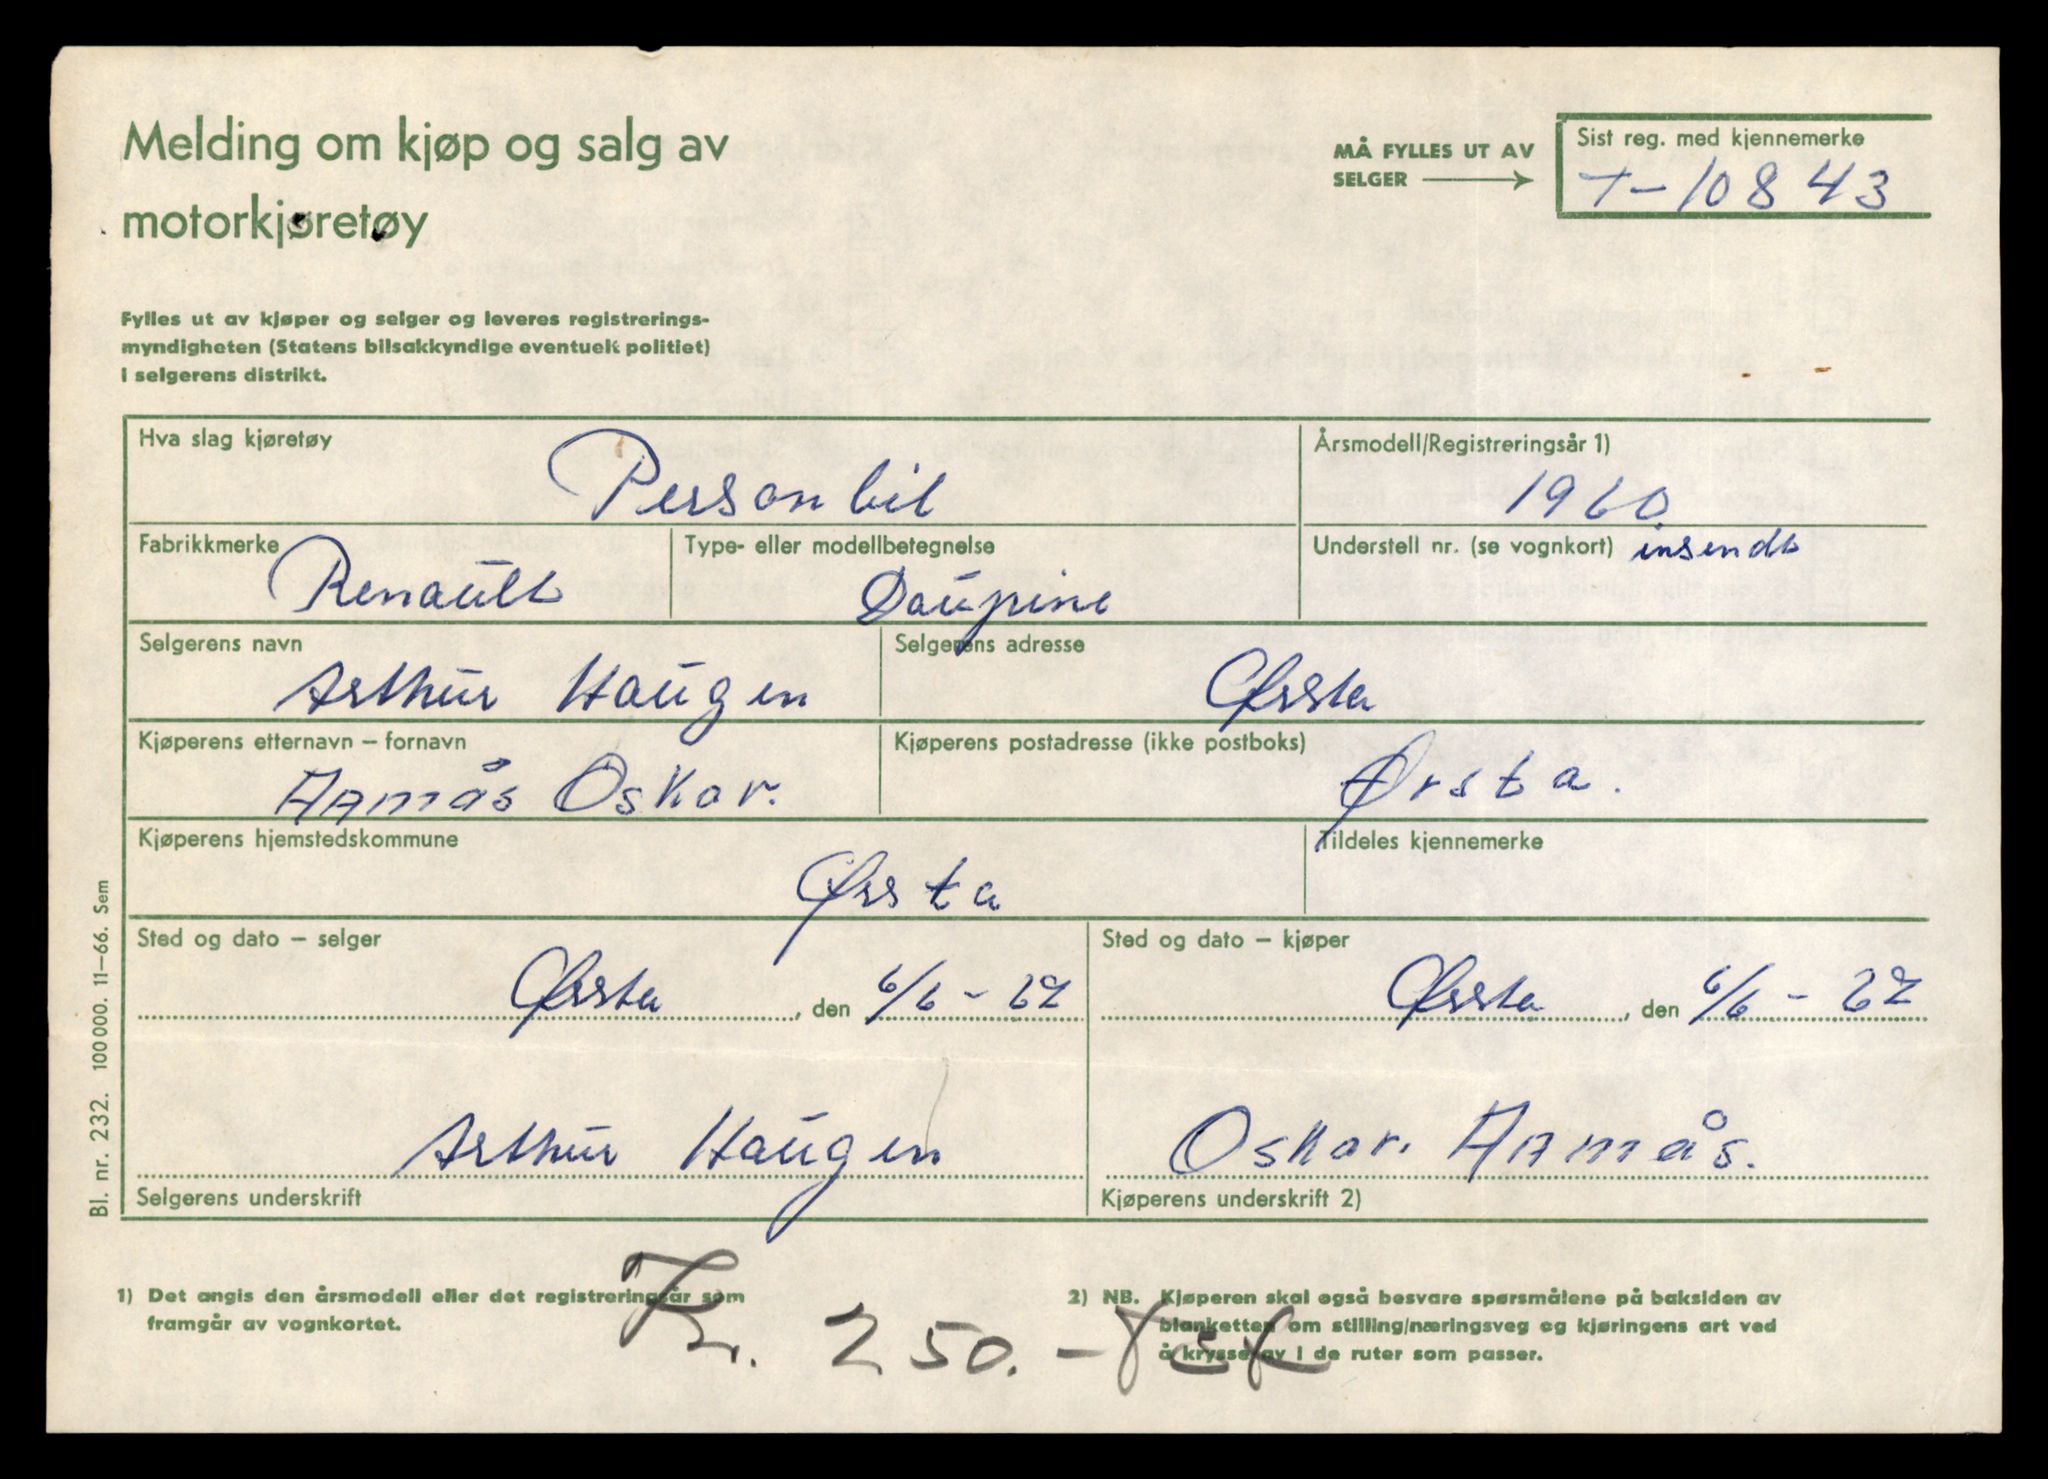 Melding om kjøp og salg av
motorkjøretøy
MÅ FYLLES UT AV
SELGER
Sist reg. med kjennemerke
T-10843
Fylles ut av kjøper og selger og leveres registrerings-
myndigheten (Statens bilsakkyndige eventuelt politiet)
i selgerens distrikt.
Hva slag kjøretøy
Personbil
Årsmodell/Registreringsår 1)
1960
Fabrikkmerke
Renault
Type- eller modellbetegnelse
Daupine
Understell nr. (se vognkort) insendt
Selgerens navn
Arthur Haugen
Selgerens adresse
Ørsta
Kjøperens etternavn – fornavn
Aamås Oskar.
Kjøperens postadresse (ikke postboks)
Ørsta.
Kjøperens hjemstedskommune
Ørsta
Tildeles kjennemerke
Sted og dato – selger
Ørsta, den 6/6 - 67
Sted og dato – kjøper
Ørsta, den 6/6 - 67
Arthur Haugen
Selgerens underskrift
Oskar. Aamås.
Kjøperens underskrift 2)
Bl. nr. 232. 100 000. 11–66. Sem
1) Det angis den årsmodell eller det registreringsår som
framgår av vognkortet.
2) NB. Kjøperen skal også besvare spørsmålene på baksiden av
blanketten om stilling/næringsveg og kjøringens art ved
å krysse av i de ruter som passer.
Kr. 250.-